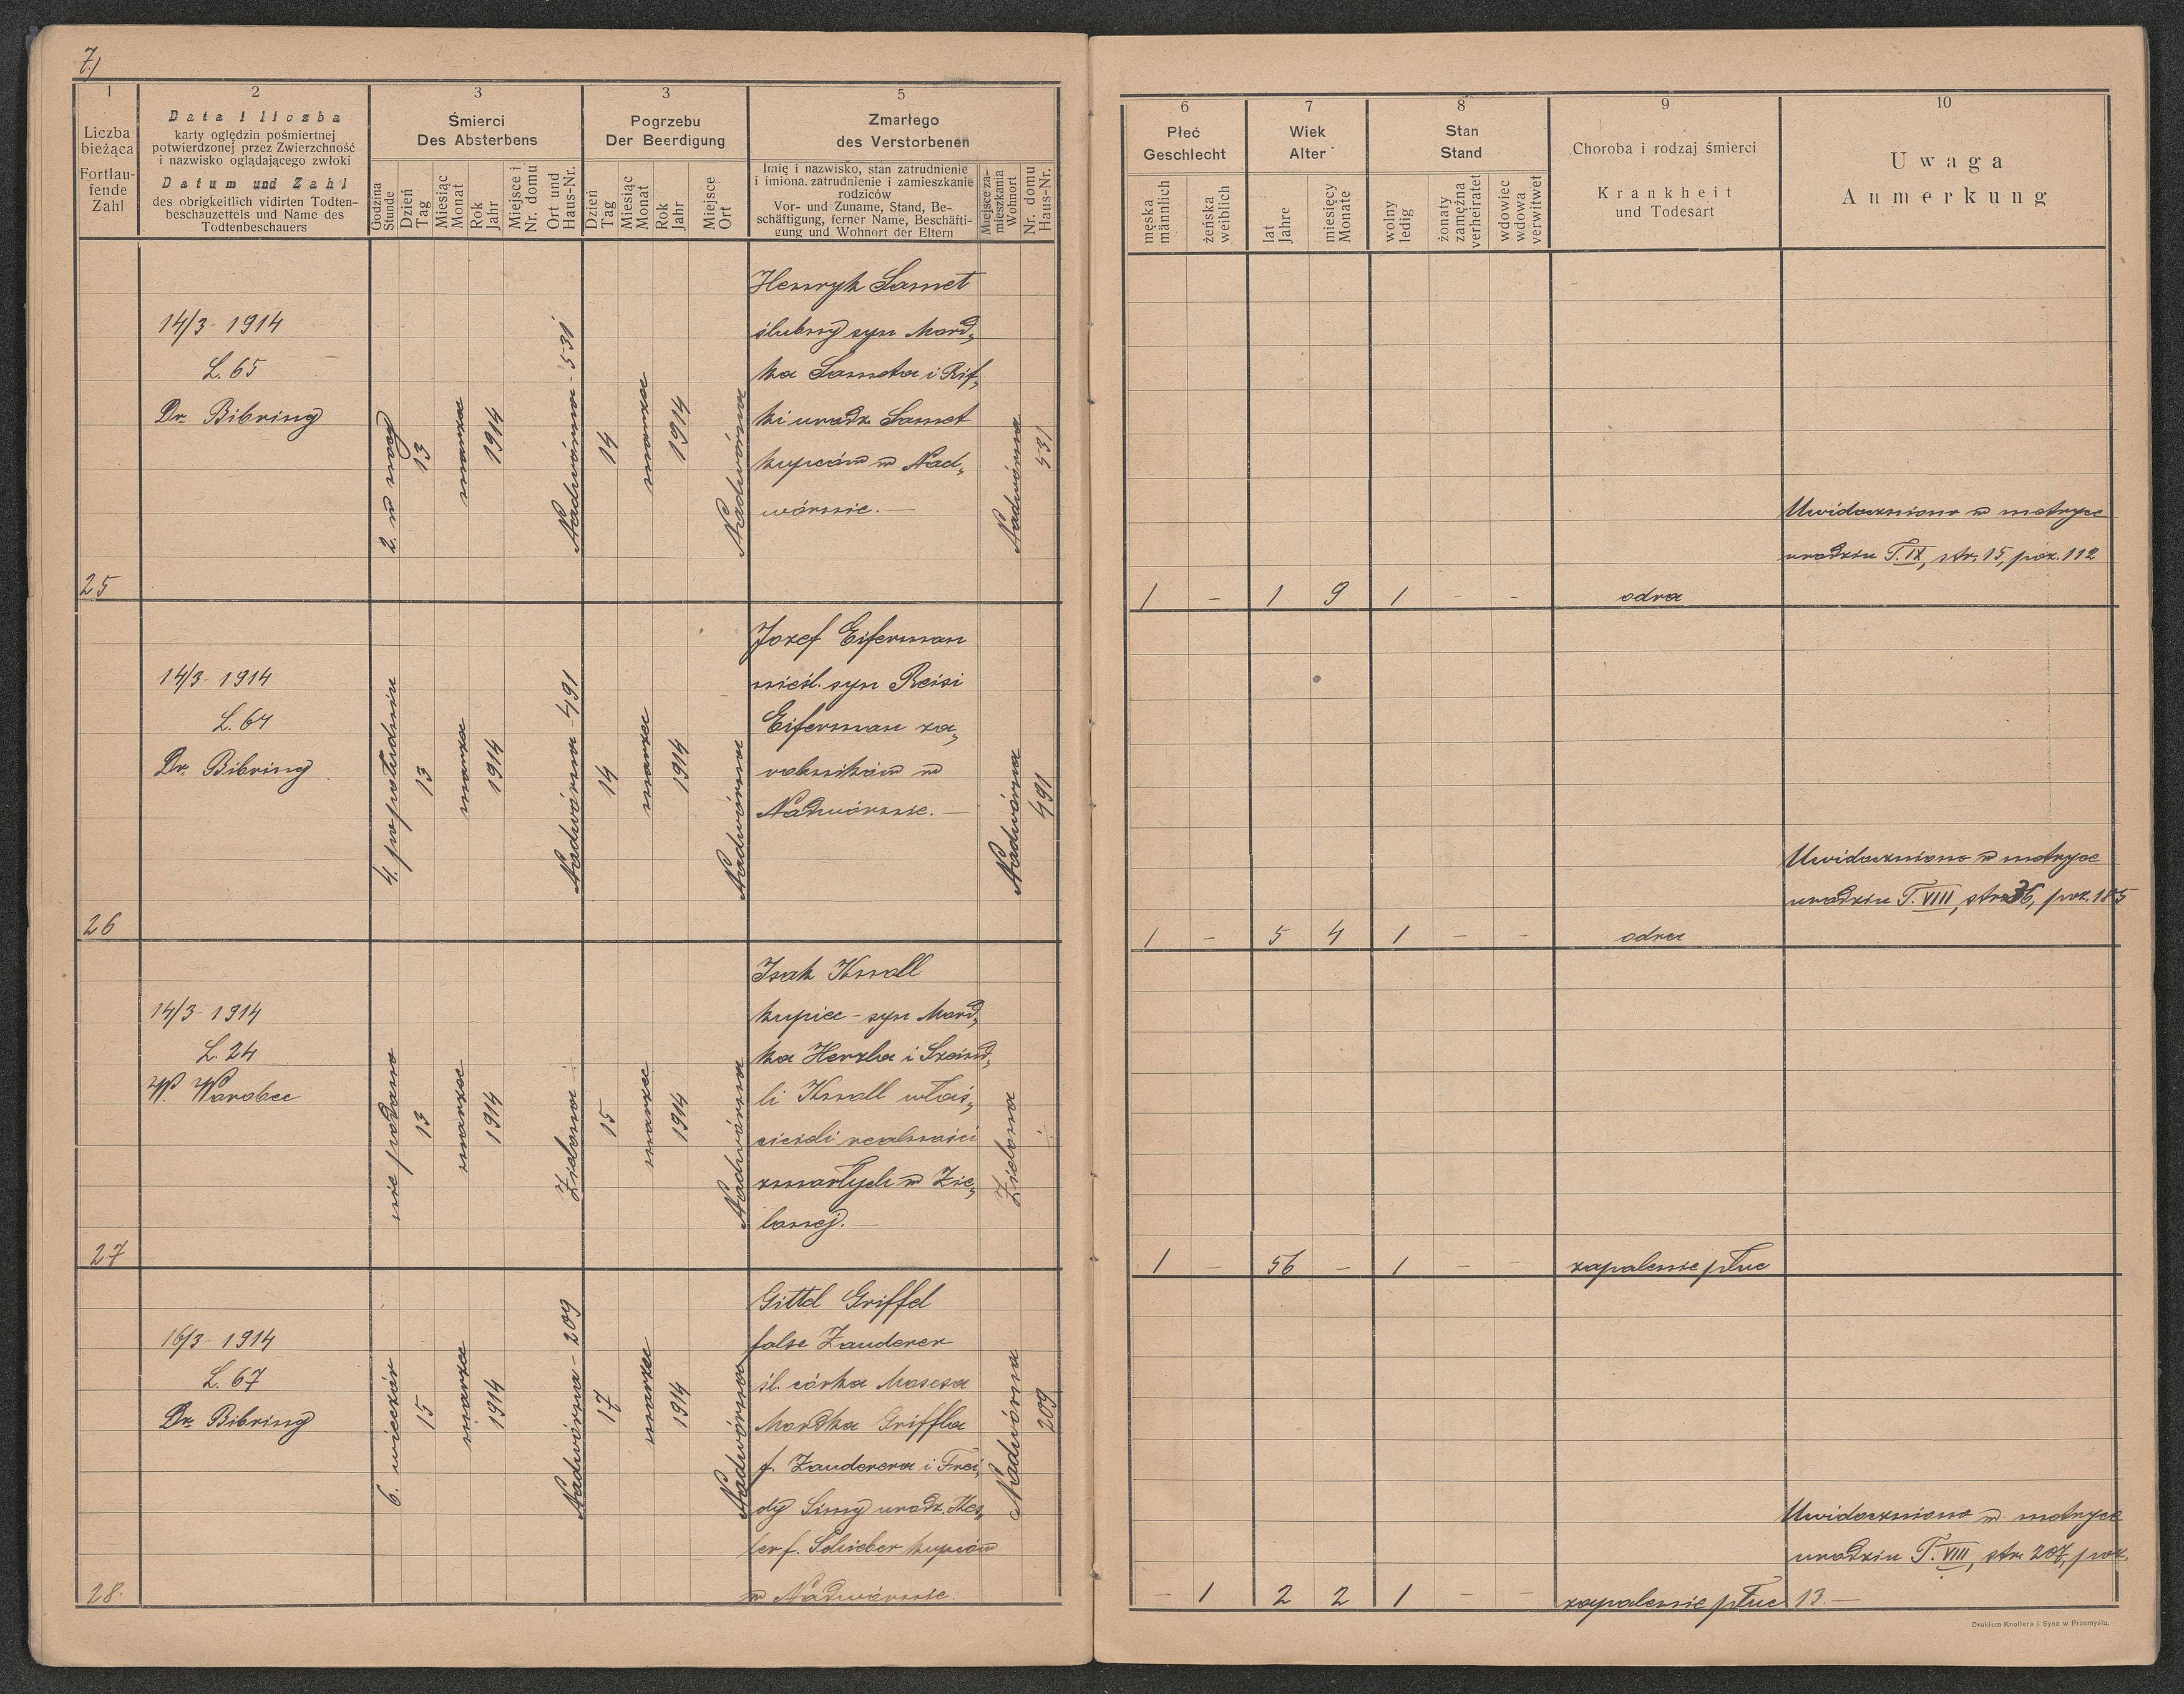 7.)
1
2
3
3
5
Liczba
bieżąca
Fortlau-
fende
Zahl
Data i liczba
karty oględzin pośmiertnej
potwierdzonej przez Zwierzchność
i nazwisko oglądającego zwłoki
Datum und Zahl
des obrigkeitlich vidirten Todten-
beschauzettels und Name des
Todtenbeschauers
Śmierci
Des Absterbens
Godzina
Stunde
Dzień
Tag
Miesiąc
Monat
Rok
Jahr
Miejsce i
Nr. domu
Ort und
Haus-Nr.
Pogrzebu
Der Beerdigung
Dzień
Tag
Miesiąc
Monat
Rok
Jahr
Miejsce
Ort
Zmarłego
des Verstorbenen
Imię i nazwisko, stan zatrudnienie
i imiona. zatrudnienie i zamieszkanie
rodziców
Vor- und Zuname, Stand, Be-
schäftigung, ferner Name, Beschäfti-
gung und Wohnort der Eltern
Miejsce za-
mieszkania
Wohnort
Nr. domu
Haus-Nr.
6
7
8
9
10
Płeć
Geschlecht
męska
männlich
żeńska
weiblich
Wiek
Alter
lat
Jahre
miesięcy
Monate
Stan
Stand
wolny
ledig
żonaty
zamężna
verheiratet
wdowiec
wdowa
verwitwet
Choroba i rodzaj śmierci
Krankheit
und Todesart
Uwaga
Anmerkung
25
14/3 - 1914
L. 65
Dr. Bibring
2. w nocy
13
marzec
1914
Nadwórna - 531
14
marzec
1914
Nadwórna
Henryk Samet
ślubny syn Mord„
ka Sameta i Rif„
ki urodz. Samet
kupców w Nad„
wórnie. —
Nadwórna
531
1 - 1 9 1 - -
odra
Uwidoczniono w metryce
urodzin T. IX, str. 15, poz. 112
26
14/3 - 1914
L. 64
Dr. Bibring
4. popołudniu
13
marzec
1914
Nadwórna 491
14
marzec
1914
Nadwórna
Jozef Eiferman
nieśl. syn Reisi
Eiferman za„
robników w
Nadwórnie. —
Nadwórna
491
1 - 5 4 1 - -
odra
Uwidoczniono w metryce
urodzin T. VIII, str. 36, poz. 185
27
14/3 - 1914
L. 24
W. Worobec
nie podano
13
marzec
1914
Zielona
15
marzec
1914
Nadwórna
Isak Knoll
kupiec - syn Mord„
ka Herzla i Szeind„
li Knoll właś„
cicieli realności
zmarłych w Zie„
lonej. —
Zielona
1 - 56 - 1 - -
zapalenie płuc
28.
16/3 - 1914
L. 67
Dr. Bibring
6. wieczór
15
marzec
1914
Nadwórna - 209
17
marzec
1914
Nadwórna
Gittel Griffel
false Zauderer
śl. córka Mosesa
Mordka Griffla
f. Zauderera i Frei„
dy Simy urodz. Kes„
ler f. Schieber kupców
w Nadwórnie.
Nadwórna
209
- 1 2 2 1 - -
zapalenie płuc
Uwidoczniono w metryce
urodzin T. VIII, str. 207, poz.
13. —
Drukiem Knollera i Syna w Przemyślu.